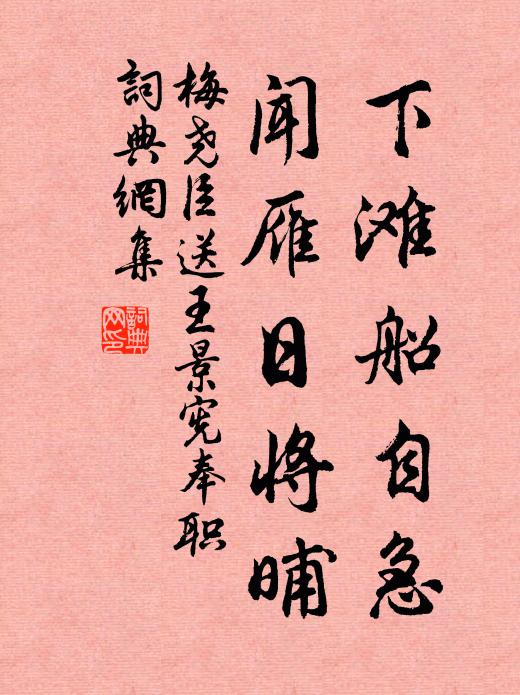 下滩船自急
闻雁日将晡
梅尧臣送王景宪奉职
詞典網集
詞典网印